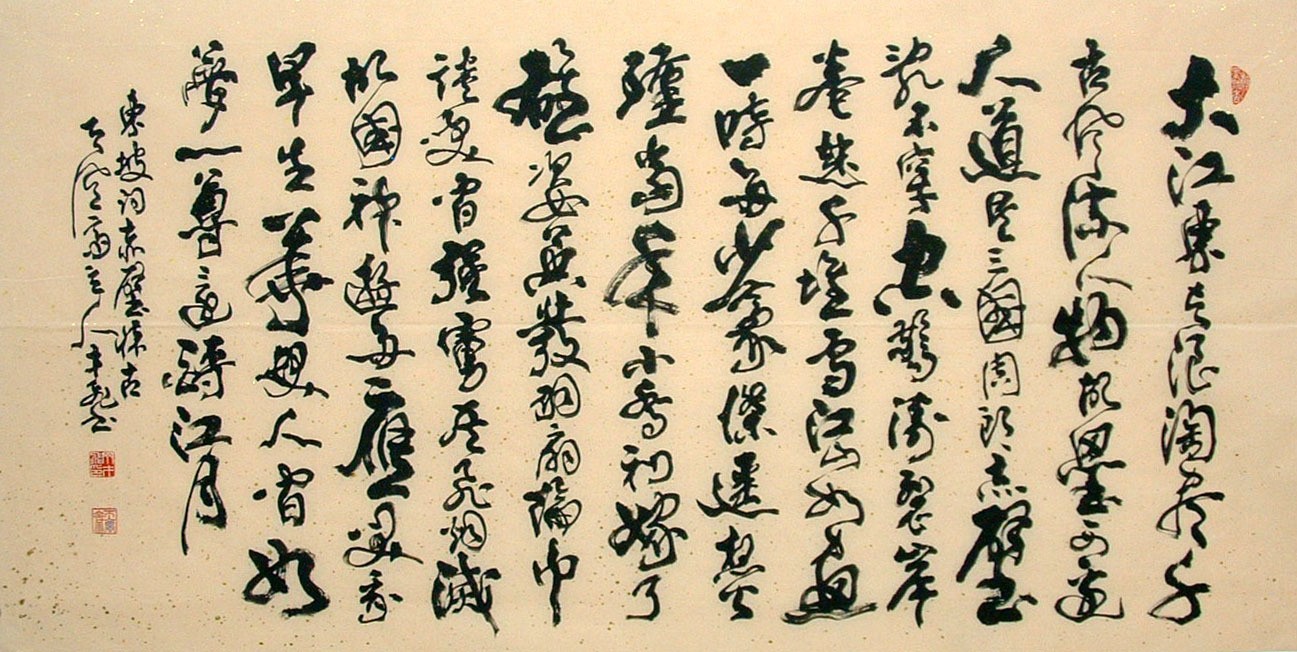 大江東去浪淘盡千
古風流人物故壘西邊
人道是三國周郎赤壁
亂石穿空驚濤裂岸
卷起千堆雪江山如畫
一時多少豪傑遙想公
瑾當年小喬初嫁了
雄姿英發羽扇綸巾
談笑間強虜灰飛煙滅
故國神遊多應笑我
早生華髮人間如
夢一尊還酹江月
東坡詞赤壁懷古